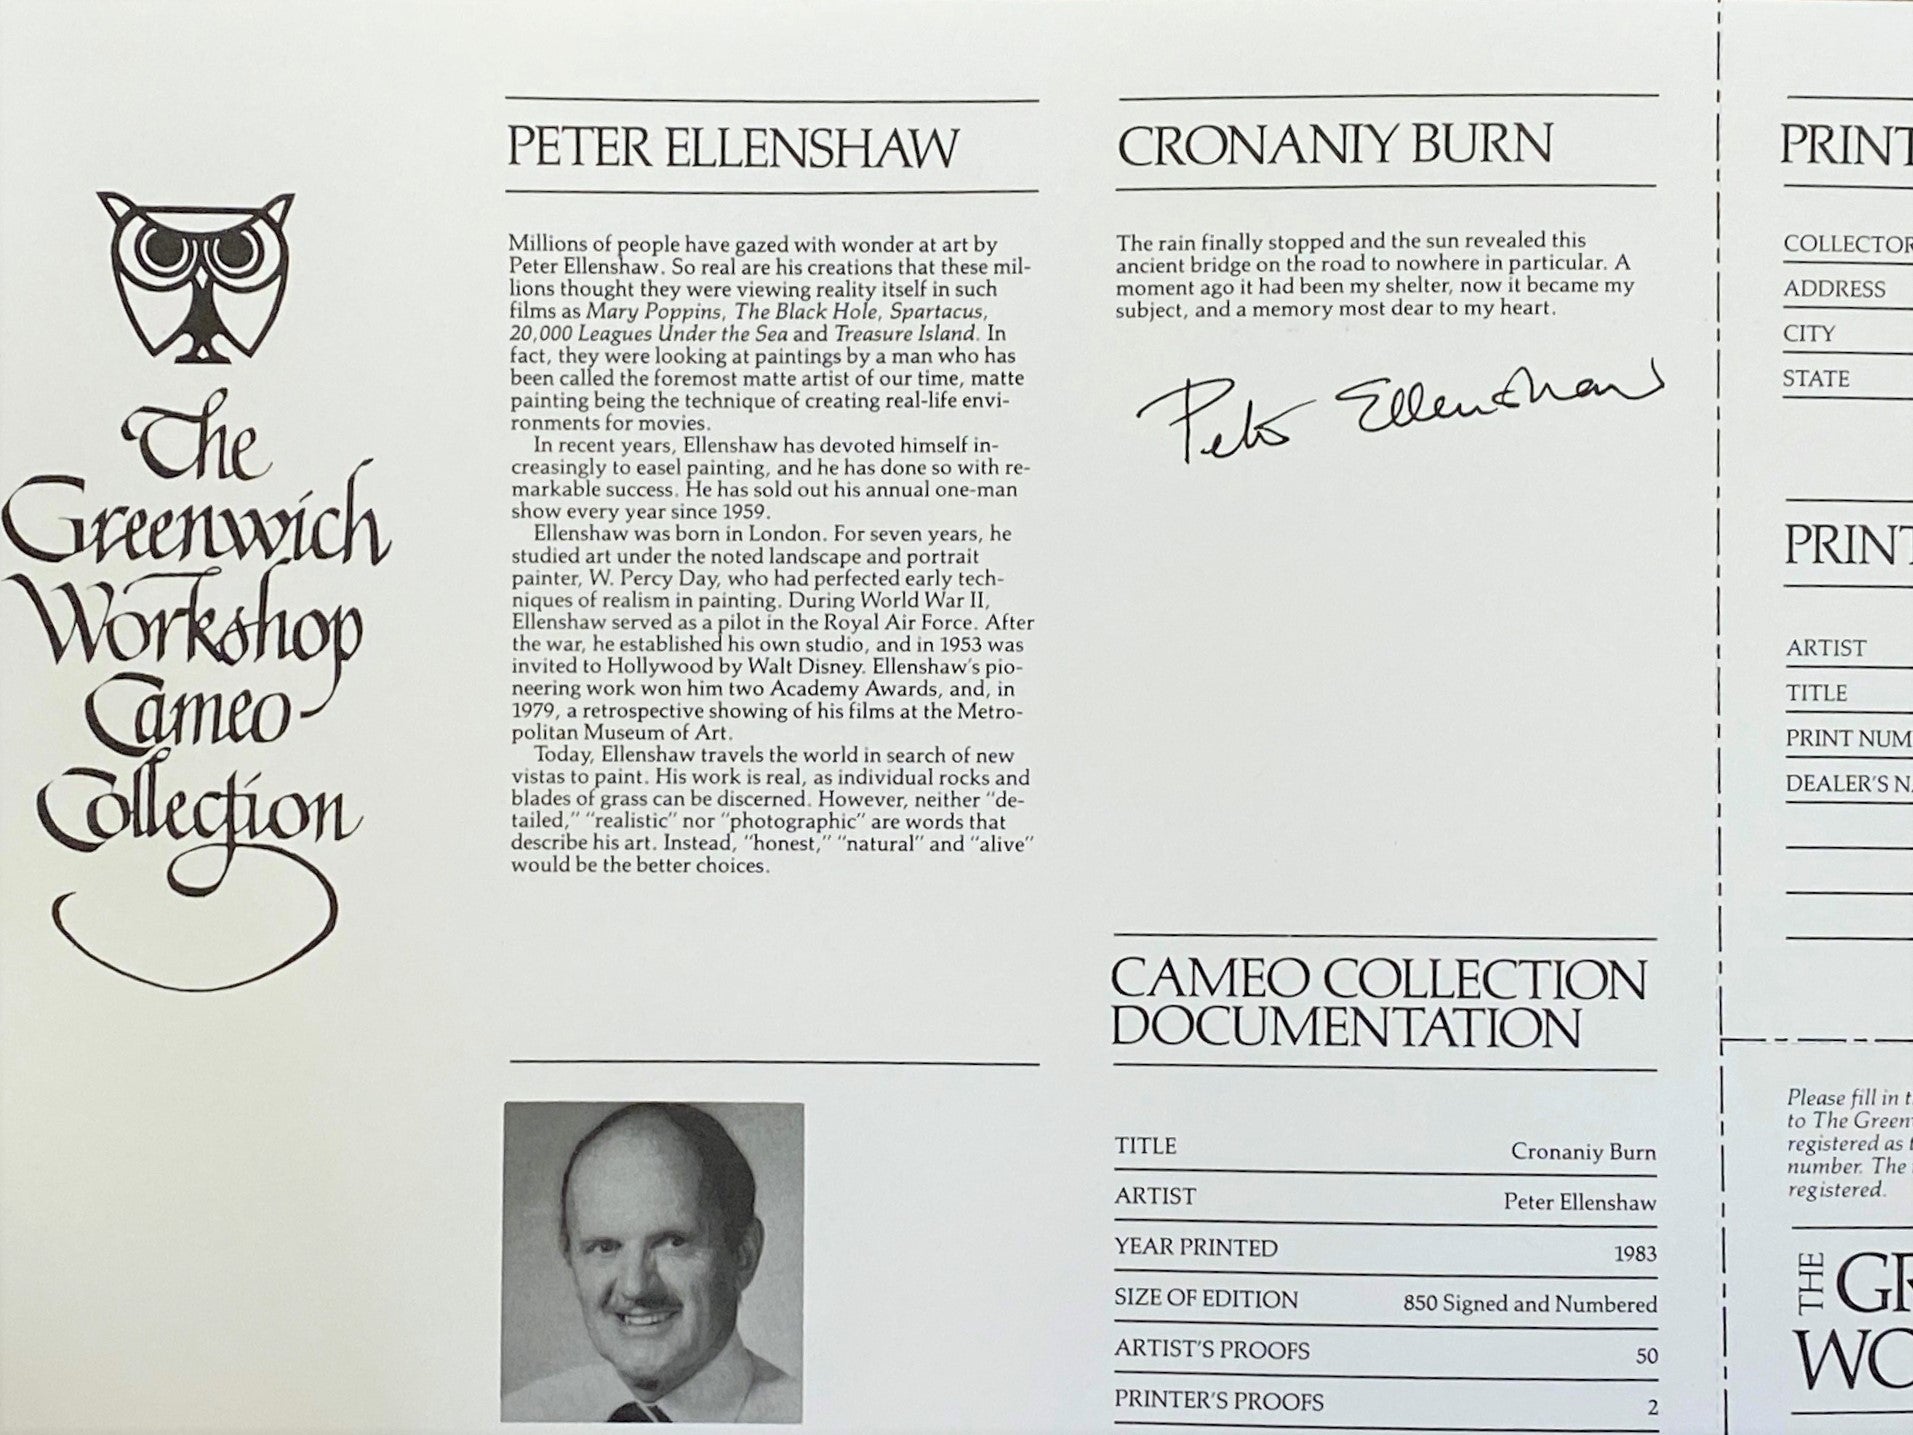 The
Greenwich
Workshop
Cameo
Collection
PETER ELLENSHAW
Millions of people have gazed with wonder at art by
Peter Ellenshaw. So real are his creations that these mil-
lions thought they were viewing reality itself in such
films as Mary Poppins, The Black Hole, Spartacus,
20,000 Leagues Under the Sea and Treasure Island. In
fact, they were looking at paintings by a man who has
been called the foremost matte artist of our time, matte
painting being the technique of creating real-life envi-
ronments for movies.
In recent years, Ellenshaw has devoted himself in-
creasingly to easel painting, and he has done so with re-
markable success. He has sold out his annual one-man
show every year since 1959.
Ellenshaw was born in London. For seven years, he
studied art under the noted landscape and portrait
painter, W. Percy Day, who had perfected early tech-
niques of realism in painting. During World War II,
Ellenshaw served as a pilot in the Royal Air Force. After
the war, he established his own studio, and in 1953 was
invited to Hollywood by Walt Disney. Ellenshaw's pio-
neering work won him two Academy Awards, and, in
1979, a retrospective showing of his films at the Metro-
politan Museum of Art.
Today, Ellenshaw travels the world in search of new
vistas to paint. His work is real, as individual rocks and
blades of grass can be discerned. However, neither "de-
tailed," "realistic" nor "photographic" are words that
describe his art. Instead, "honest," "natural" and "alive"
would be the better choices.
CRONANIY BURN
The rain finally stopped and the sun revealed this
ancient bridge on the road to nowhere in particular. A
moment ago it had been my shelter, now it became my
subject, and a memory most dear to my heart.
Peter Ellenshaw
CAMEO COLLECTION
DOCUMENTATION
TITLE Cronaniy Burn
ARTIST Peter Ellenshaw
YEAR PRINTED 1983
SIZE OF EDITION 850 Signed and Numbered
ARTIST'S PROOFS 50
PRINTER'S PROOFS 2
PRINT
COLLECTOR
ADDRESS
CITY
STATE
PRINT
ARTIST
TITLE
PRINT NUM
DEALER'S N
Please fill in t
to The Green
registered as t
number. The
registered.
THE GR
WO